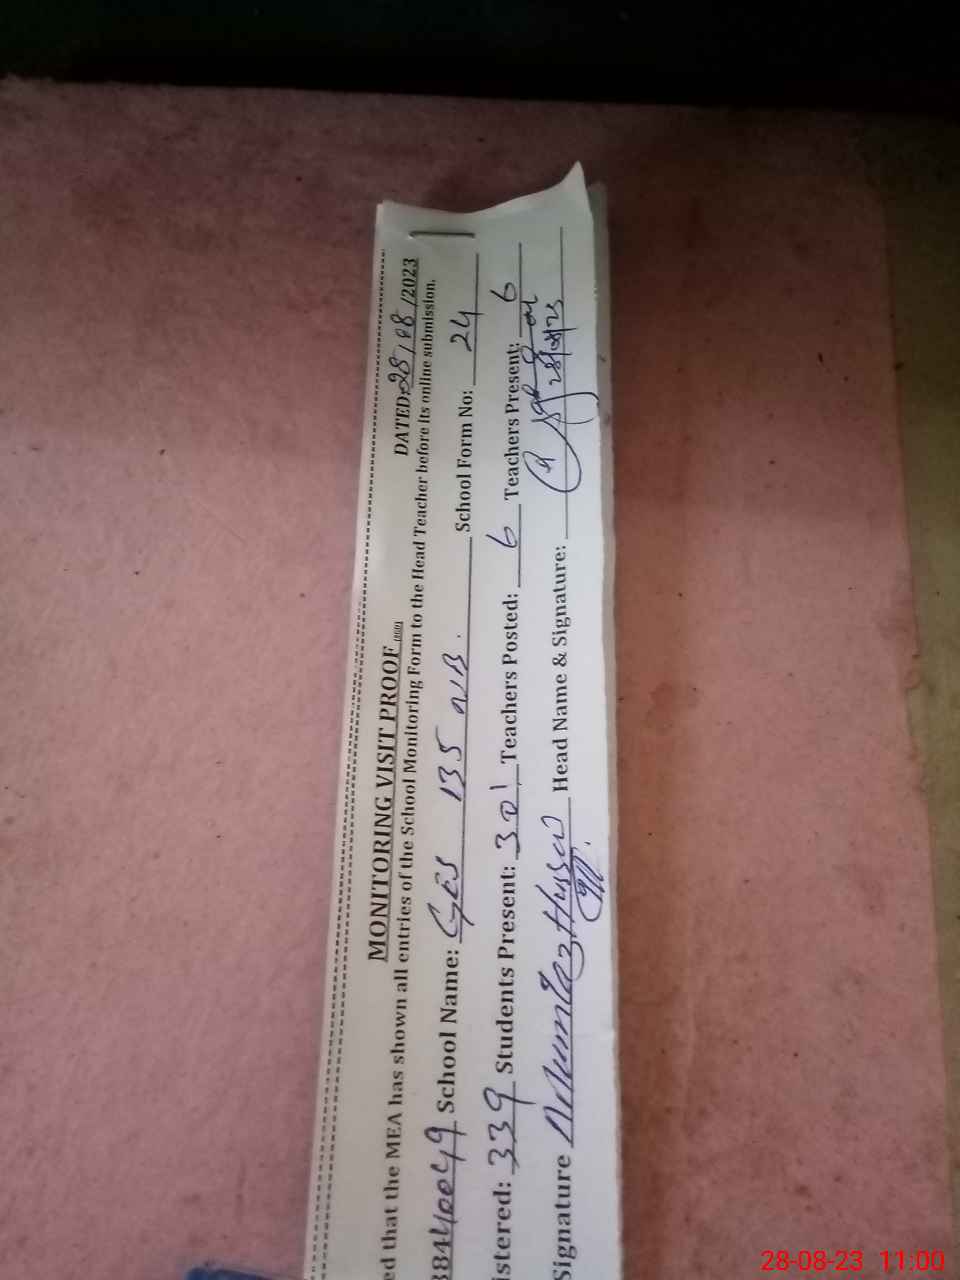 MONITORING VISIT PROOF
DATED: 28/08/2023
ed that the MEA has shown all entries of the School Monitoring Form to the Head Teacher before its online submission.
38440049 School Name: GES 135 NB. School Form No: 24
istered: 339 Students Present: 301 Teachers Posted: 6 Teachers Present: 6
Signature Mumtaz Hussain Head Name & Signature:
28-08-23 11:00